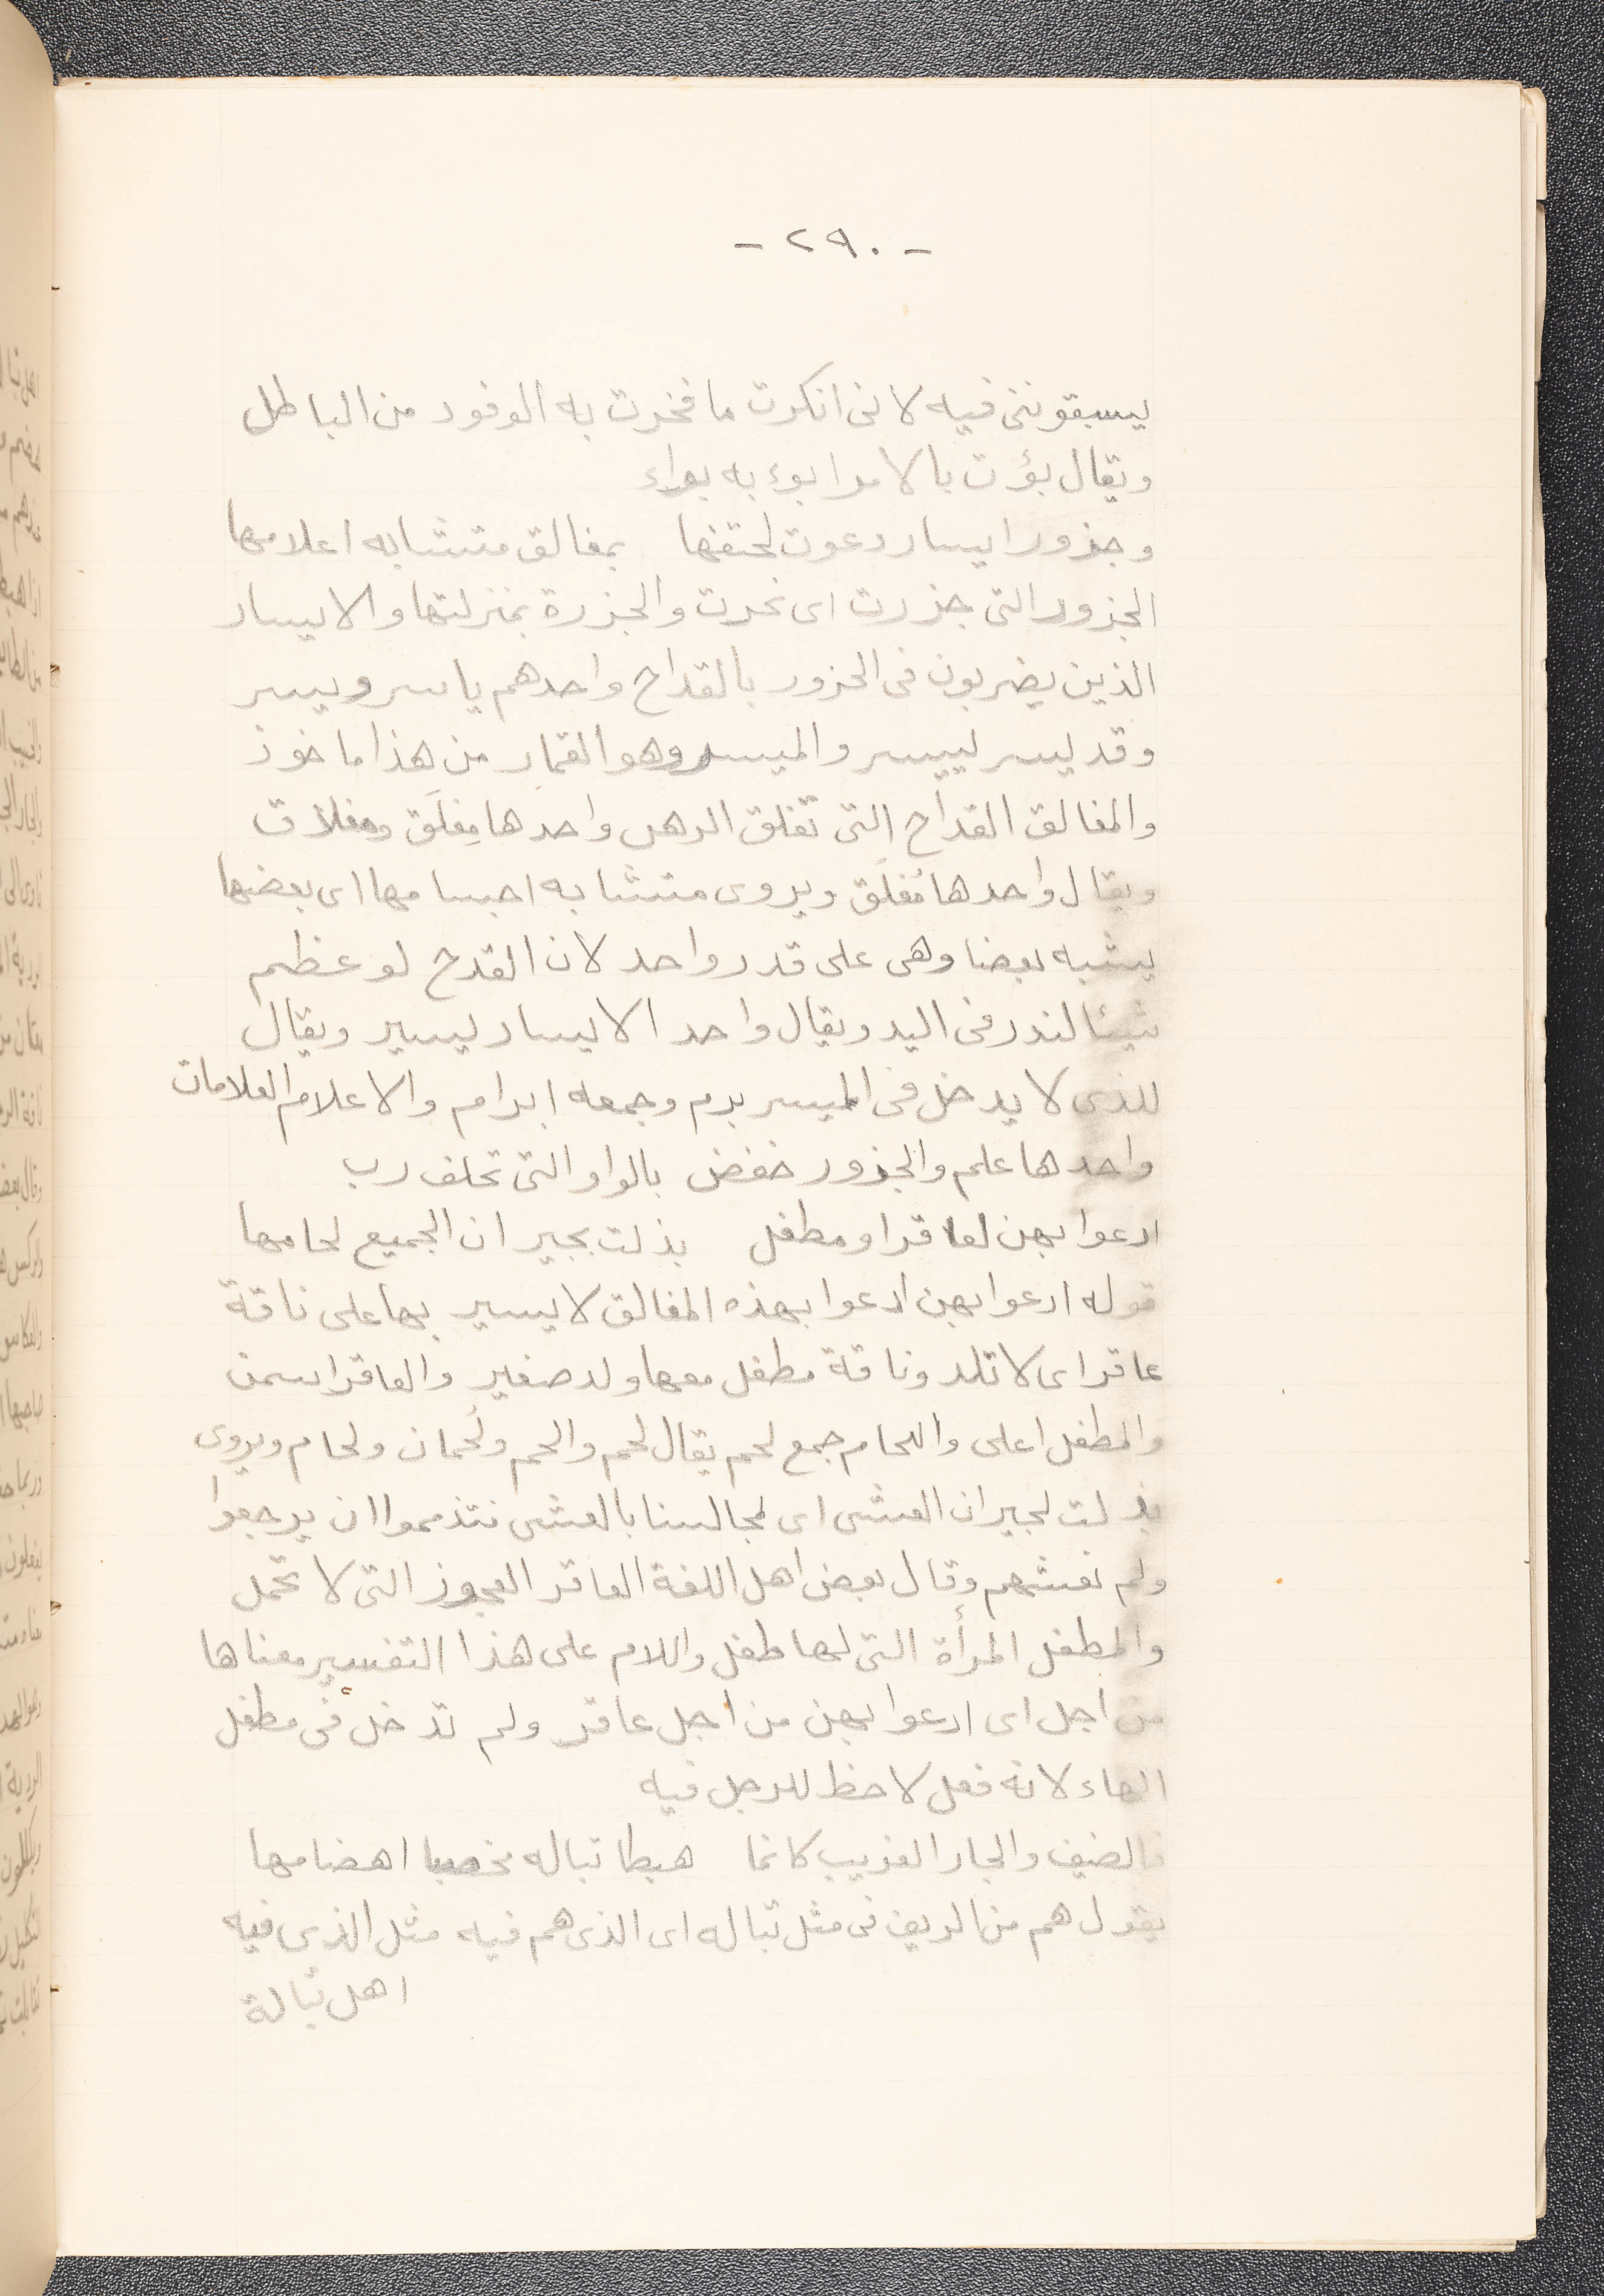 - ٢٩٠ -
يسبقوننى فيه لانى انكرت ما فخرت به الوفود من الباطل
ويقال بؤت بالامر ابوء به بواء
وجزور ايسار دعوت لحتفها بمغالق متشابه اعلامها
الجزور التى جزرت اى نحرت والجزرة بمنزلتها والايسار
الذين يضربون فى الجزور بالقداح واحدهم ياسر ويسر
وقد يسر ييسر والميسر وهو القمار من هذا ماخوذ
والمغالق القداح التى تغلق الرهن واحدها مِغلَق ومغلاق
ويقال واحدها مُغلَق ويروى متشابه اجسامها اى بعضها
يشبه بعضا وهى على قدر واحد لان القدح لو عظم
شيئا لندر فى اليد ويقال واحد الايسار يسير ويقال
للذى لا يدخل فى الميسر برم وجمعه ابرام والاعلام العلامات
واحدها علم والجزور خفض بالواو التى تخلف رب
ادعوا بهن لعاقر او مطفل بذلت بجيران الجميع لحامها
قوله ادعوا بهن ادعوا بهذه المغالق لايسير بها على ناقة
عاقر اى لا تلد وناقة مطفل معها ولد صغير والعاقر اسمن
والمطفل اعلى واللحام جمع لحم يقال لحم والحم ولُحمان ولحام ويروى
بذلت لجيران العشى اى لمجالسنا بالعشى نتذمموا ان يرجعوا
ولم نعشهم وقال بعض اهل اللغة العاقر العجوز التى لا تحمل
والمطفل المرأة التى لها طفل واللام على هذا التفسير معناها
من اجل اى ادعوا بهن من اجل عاقر ولم تدخل فى مطفل
الهاء لانه فعل لا حظ للرجل فيه
فالضيف والجار الغريب كانما هبطا تباله مخصبا اهضامها
يقول هم من الريف فى مثل تباله اى الذى هم فيه مثل الذى فيه
اهل تبالة